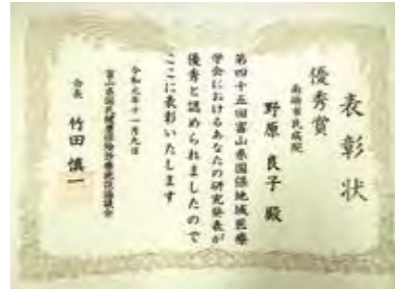 表彰状
優秀賞
南砺市民病院
野原 良子 殿
第四十五回富山県国保地域医療
学会におけるあなたの研究発表が
優秀と認められましたので
ここに表彰いたします
令和元年十一月九日
富山県国民健康保険診療施設協議会
会長 竹田 慎一